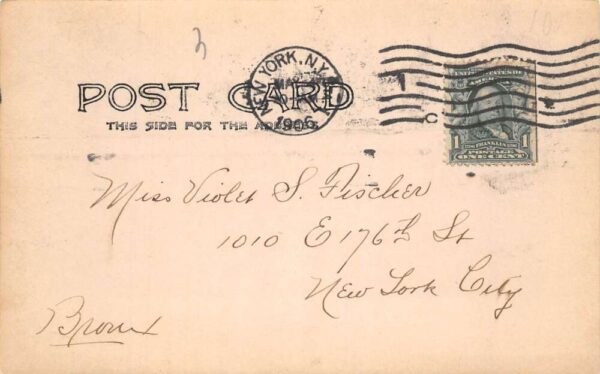 3
NEW YORK, N.Y.
1906
POST CARD
THIS SIDE FOR THE ADDRESS
UNITED STATES OF
AMERICA
1 FRANKLIN 1
POSTAGE
ONE CENT
C
Miss Violet S. Fischer
1010 E 176th St
New York City
Bronx